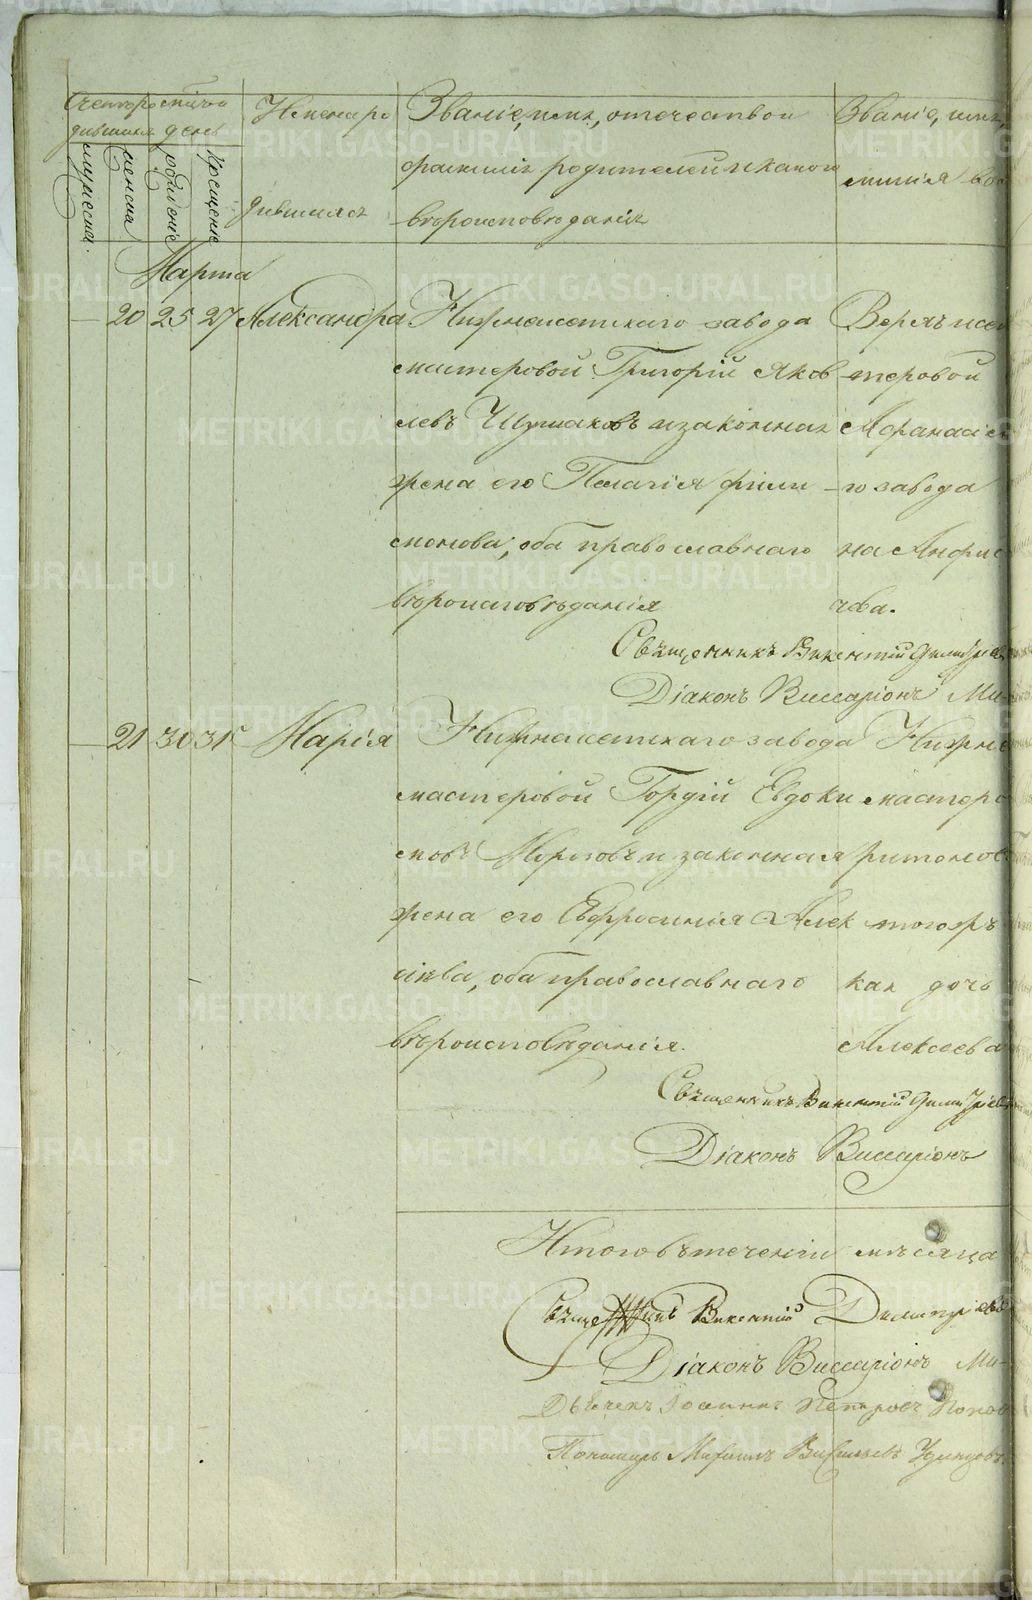 Счетъ ро мѣсяцъ и
дившихся день
мужеска.
женска
рожденіе
крещеніе
Имена ро
дившихся
Званіе, имя, отечество и
фамилія родителей и какого
вѣроисповѣданія
Званіе, имя,
милія вос
Марта
20 25 27 Александра
Нижнеисетскаго завода
мастеровой Григорій Яков
левъ Шушаковъ и законная
жена его Пелагія Фили
монова, оба православнаго
вѣроисповѣданія
Верхъ исет
теровой
Афанасіе
го завода
на Анфис
чева.
Священникъ Викентій Димитріев
Діаконъ Виссаріонъ Ми-
21 30 31 Марія
Нижнеисетскаго завода
мастеровой Гордій Евдоки
мовъ Морозовъ и законная
жена его Евфросинія Алек
сіева, оба православнаго
вѣроисповѣданія.
Нижне
мастеро
ритонов
тогожъ
кан дочь
Алексеева
Священникъ Викентій Димитріев
Діаконъ Виссаріонъ
Итого въ теченіи мѣсяца
Священникъ Викентій Димитріев
Діаконъ Виссаріонъ Ми-
Дьячекъ Іоаннъ Петровъ Попов
Пономарь Михаилъ Васильевъ
METRIKI.GASO-URAL.RU